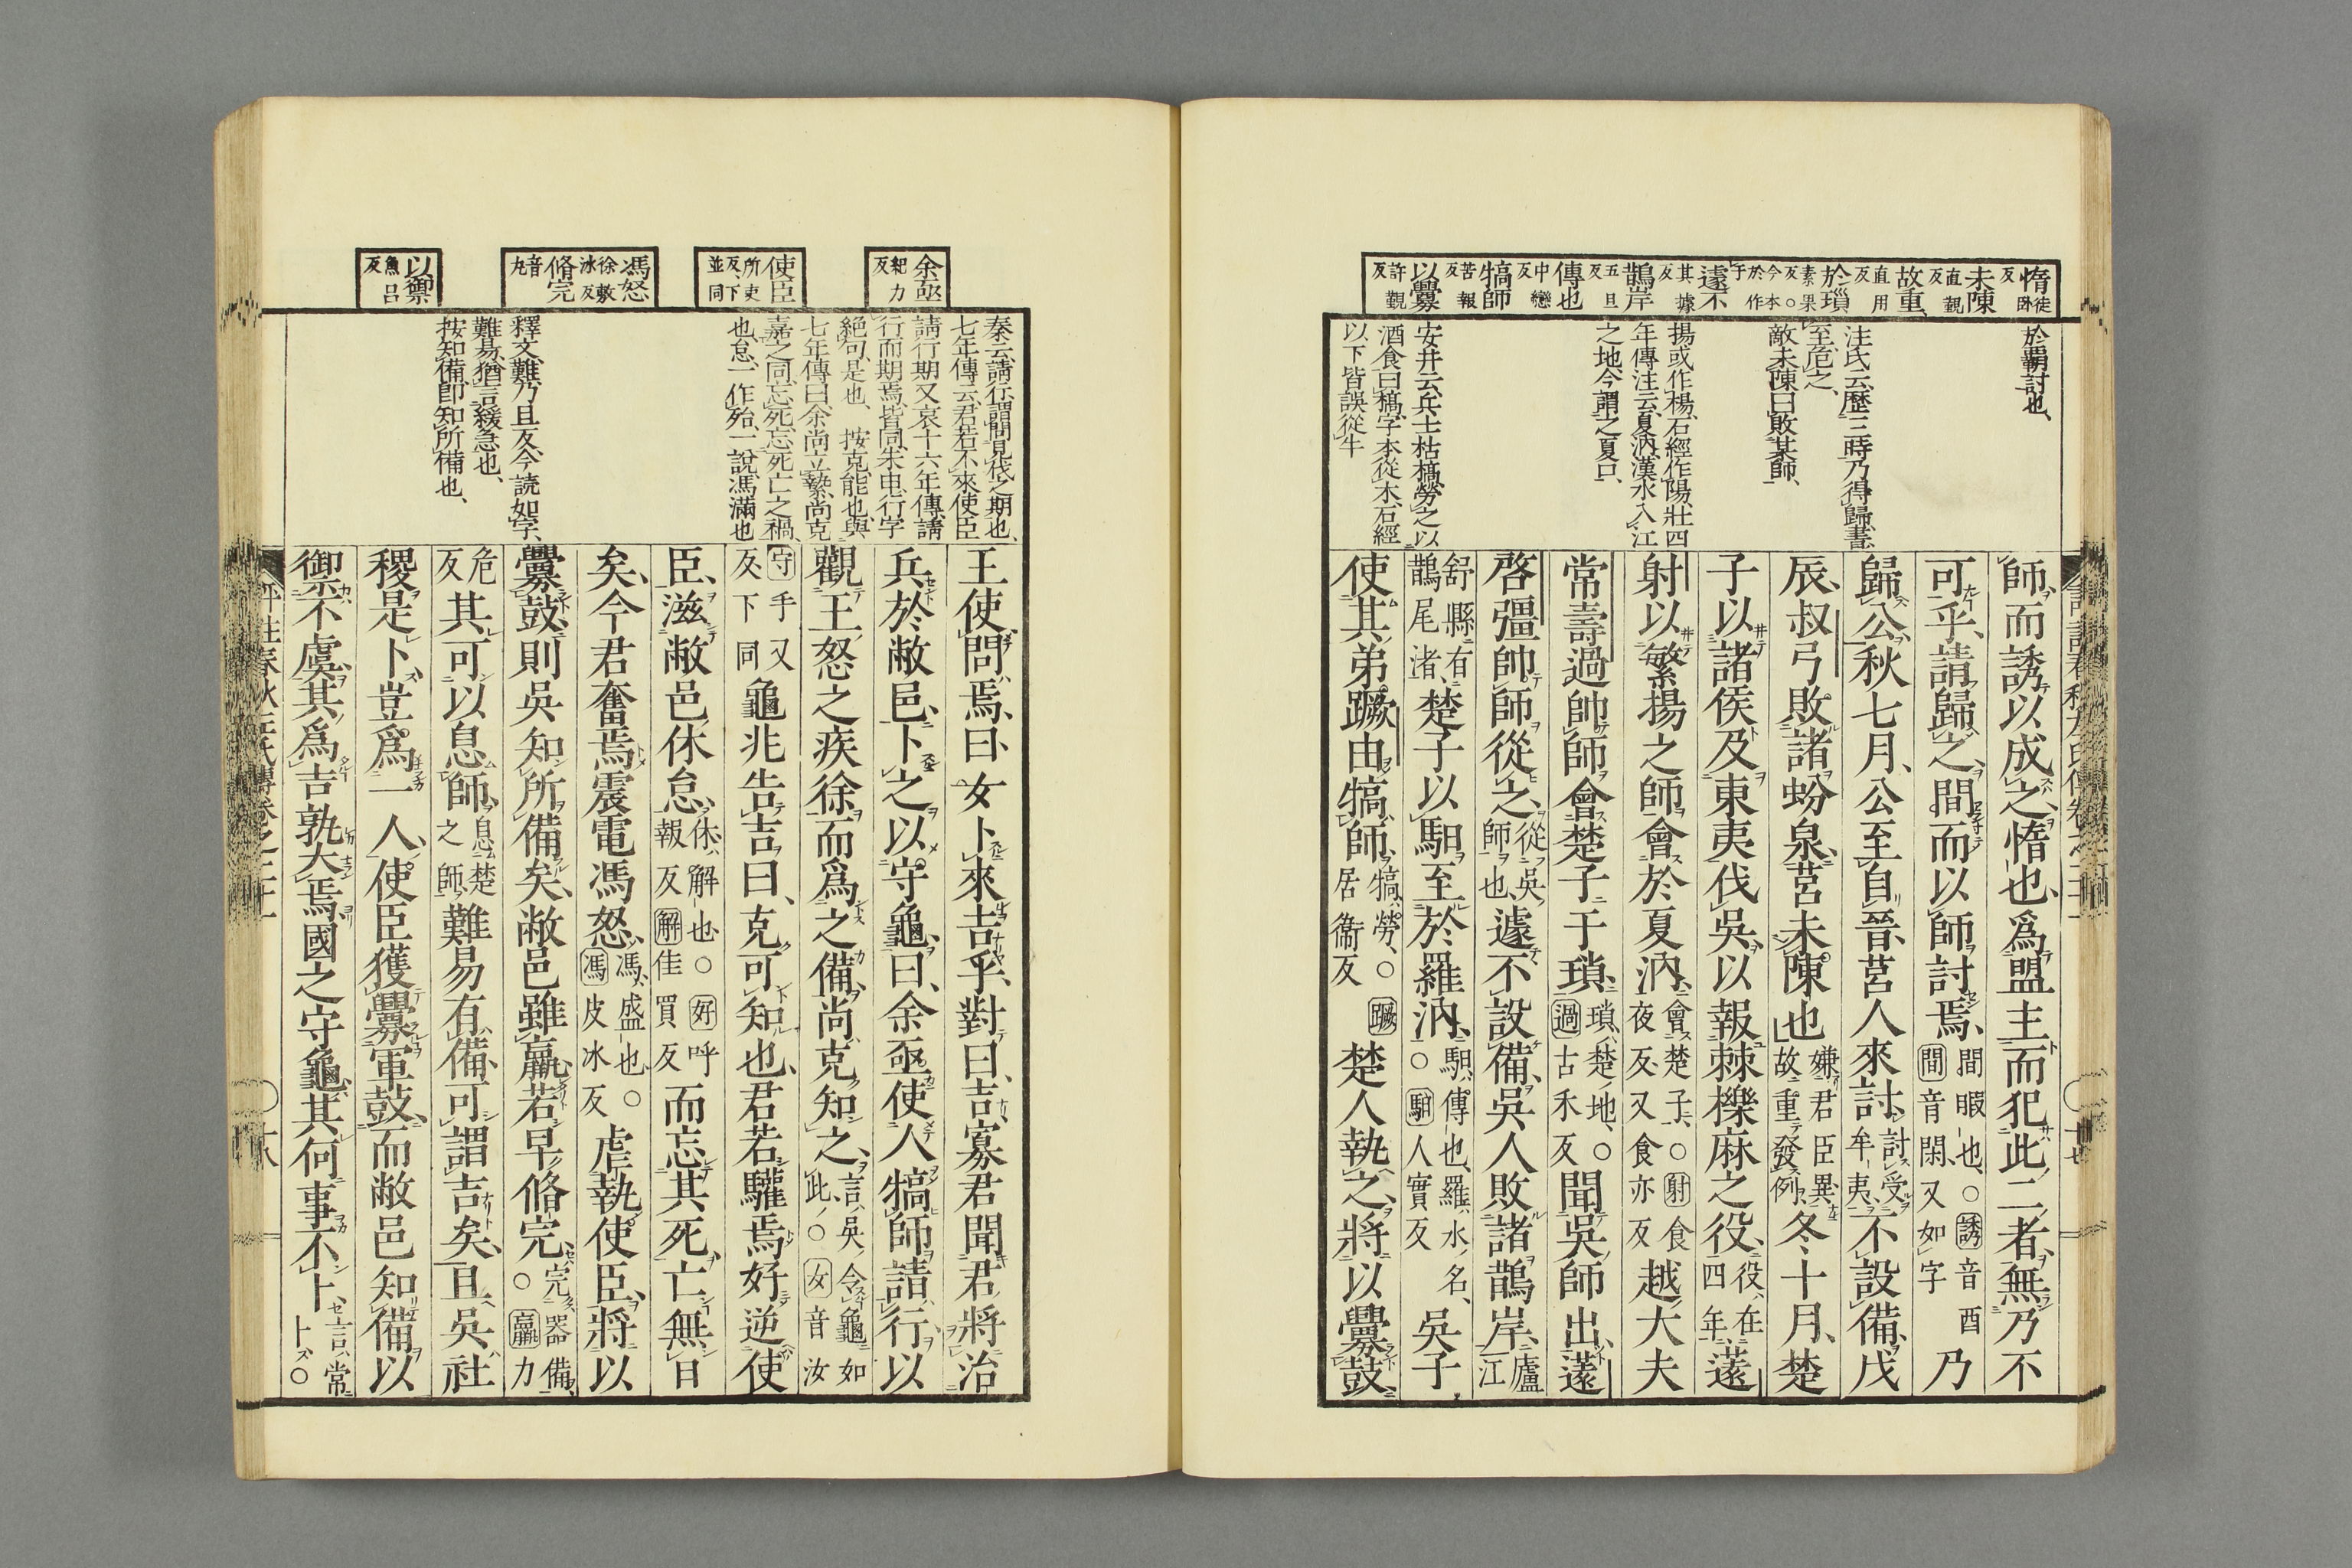 惰 徒臥反
未陳 直覲反
故重 直用反
於瑣 素果反○今本於作于
遽不 其據反
鵲岸 五旦反
傳也 中戀反
犒師 苦報反
以釁 許覲反
於覇討也、
注氏云歷三時乃得歸書
至危之、
敵未陳曰敗某師、
揚或作楊石經作陽莊四
年傳注云夏汭漢水入江
之地今謂之夏口、
安井云兵士枯槁勞之以
酒食曰槁字本從木石經
以下皆誤從牛
師而誘以成之惰也爲盟主而犯此二者無乃不
可乎請歸之間而以師討焉 間暇也○誘音酉 間音閑又如字 乃
歸公秋七月公至自晉莒人來討 討受牟夷 不設備戊
辰叔弓敗諸蚡泉莒未陳也 嫌君臣異故重發例 冬十月楚
子以諸侯及東夷伐吳以報棘櫟麻之役 役在四年 薳
射以繁揚之師會於夏汭 會楚子○射食夜反又食亦反 越大夫
常壽過帥師會楚子于瑣 瑣楚地○過古禾反 聞吳師出薳
啓彊帥師從之 從吳師也 遽不設備吳人敗諸鵲岸 廬江
舒縣有鵲尾渚 楚子以馹至於羅汭 馹傳也羅水名○馹人實反 吳子
使其弟蹶由犒師 犒勞○蹶居衞反 楚人執之將以釁鼓
余亟 紀力反
使臣 所吏反下並同
馮怒 徐敷冰反
脩完 音丸
以禦 魚呂反
秦云請行謂問見伐之期也、
七年傳云君若不來使臣
請行期又哀十六年傳請
行而期焉皆同朱申行字
絕句是也、按克能也與
七年傳曰余尚立縶尚克
嘉之同忘死忘死亡之禍
也怠一作殆一說馮滿也
釋文難乃且反今読如字、
難易猶言緩急也、
按知備卽知所備也、
王使問焉曰女卜來吉乎對曰吉寡君聞君將治
兵於敝邑卜之以守龜曰余亟使人犒師請行以
觀王怒之疾徐而爲之備尚克知之 言吳令龜如此○女音汝
守手又反下同 龜兆告吉曰克可知也君若驩焉好逆使
臣滋敝邑休怠 休解也○好呼報反解佳買反 而忘其死亡無日
矣今君奮焉震電馮怒 馮盛也○馮皮冰反 虐執使臣將以
釁鼓則吳知所備矣敝邑雖羸若早脩完 完器備○羸力
危反 其可以息師 息楚之師 難易有備可謂吉矣且吳社
稷是卜豈爲一人使臣獲釁軍鼓而敝邑知備以
禦不虞其爲吉孰大焉國之守龜其何事不卜 言常卜○